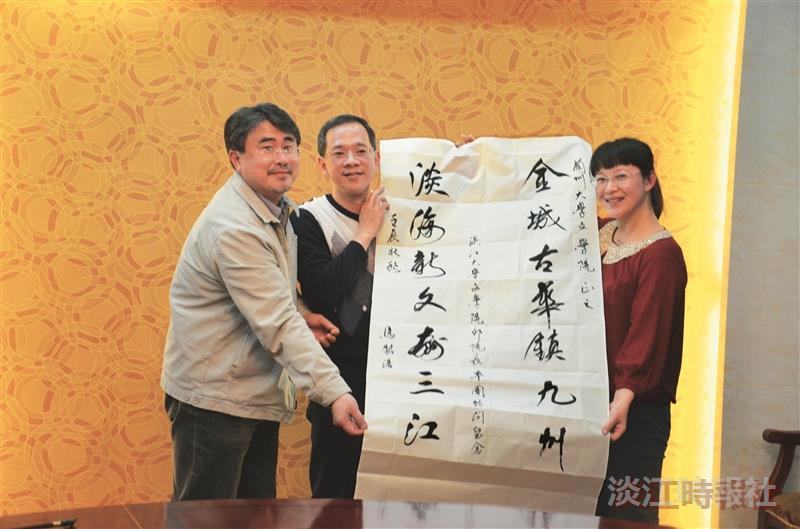 蘭州大學文學院正之
金城古華鎮九州
淡江大學文學院邱院長率團訪問留念
淡海新文三江
壬辰秋
淡江時報社